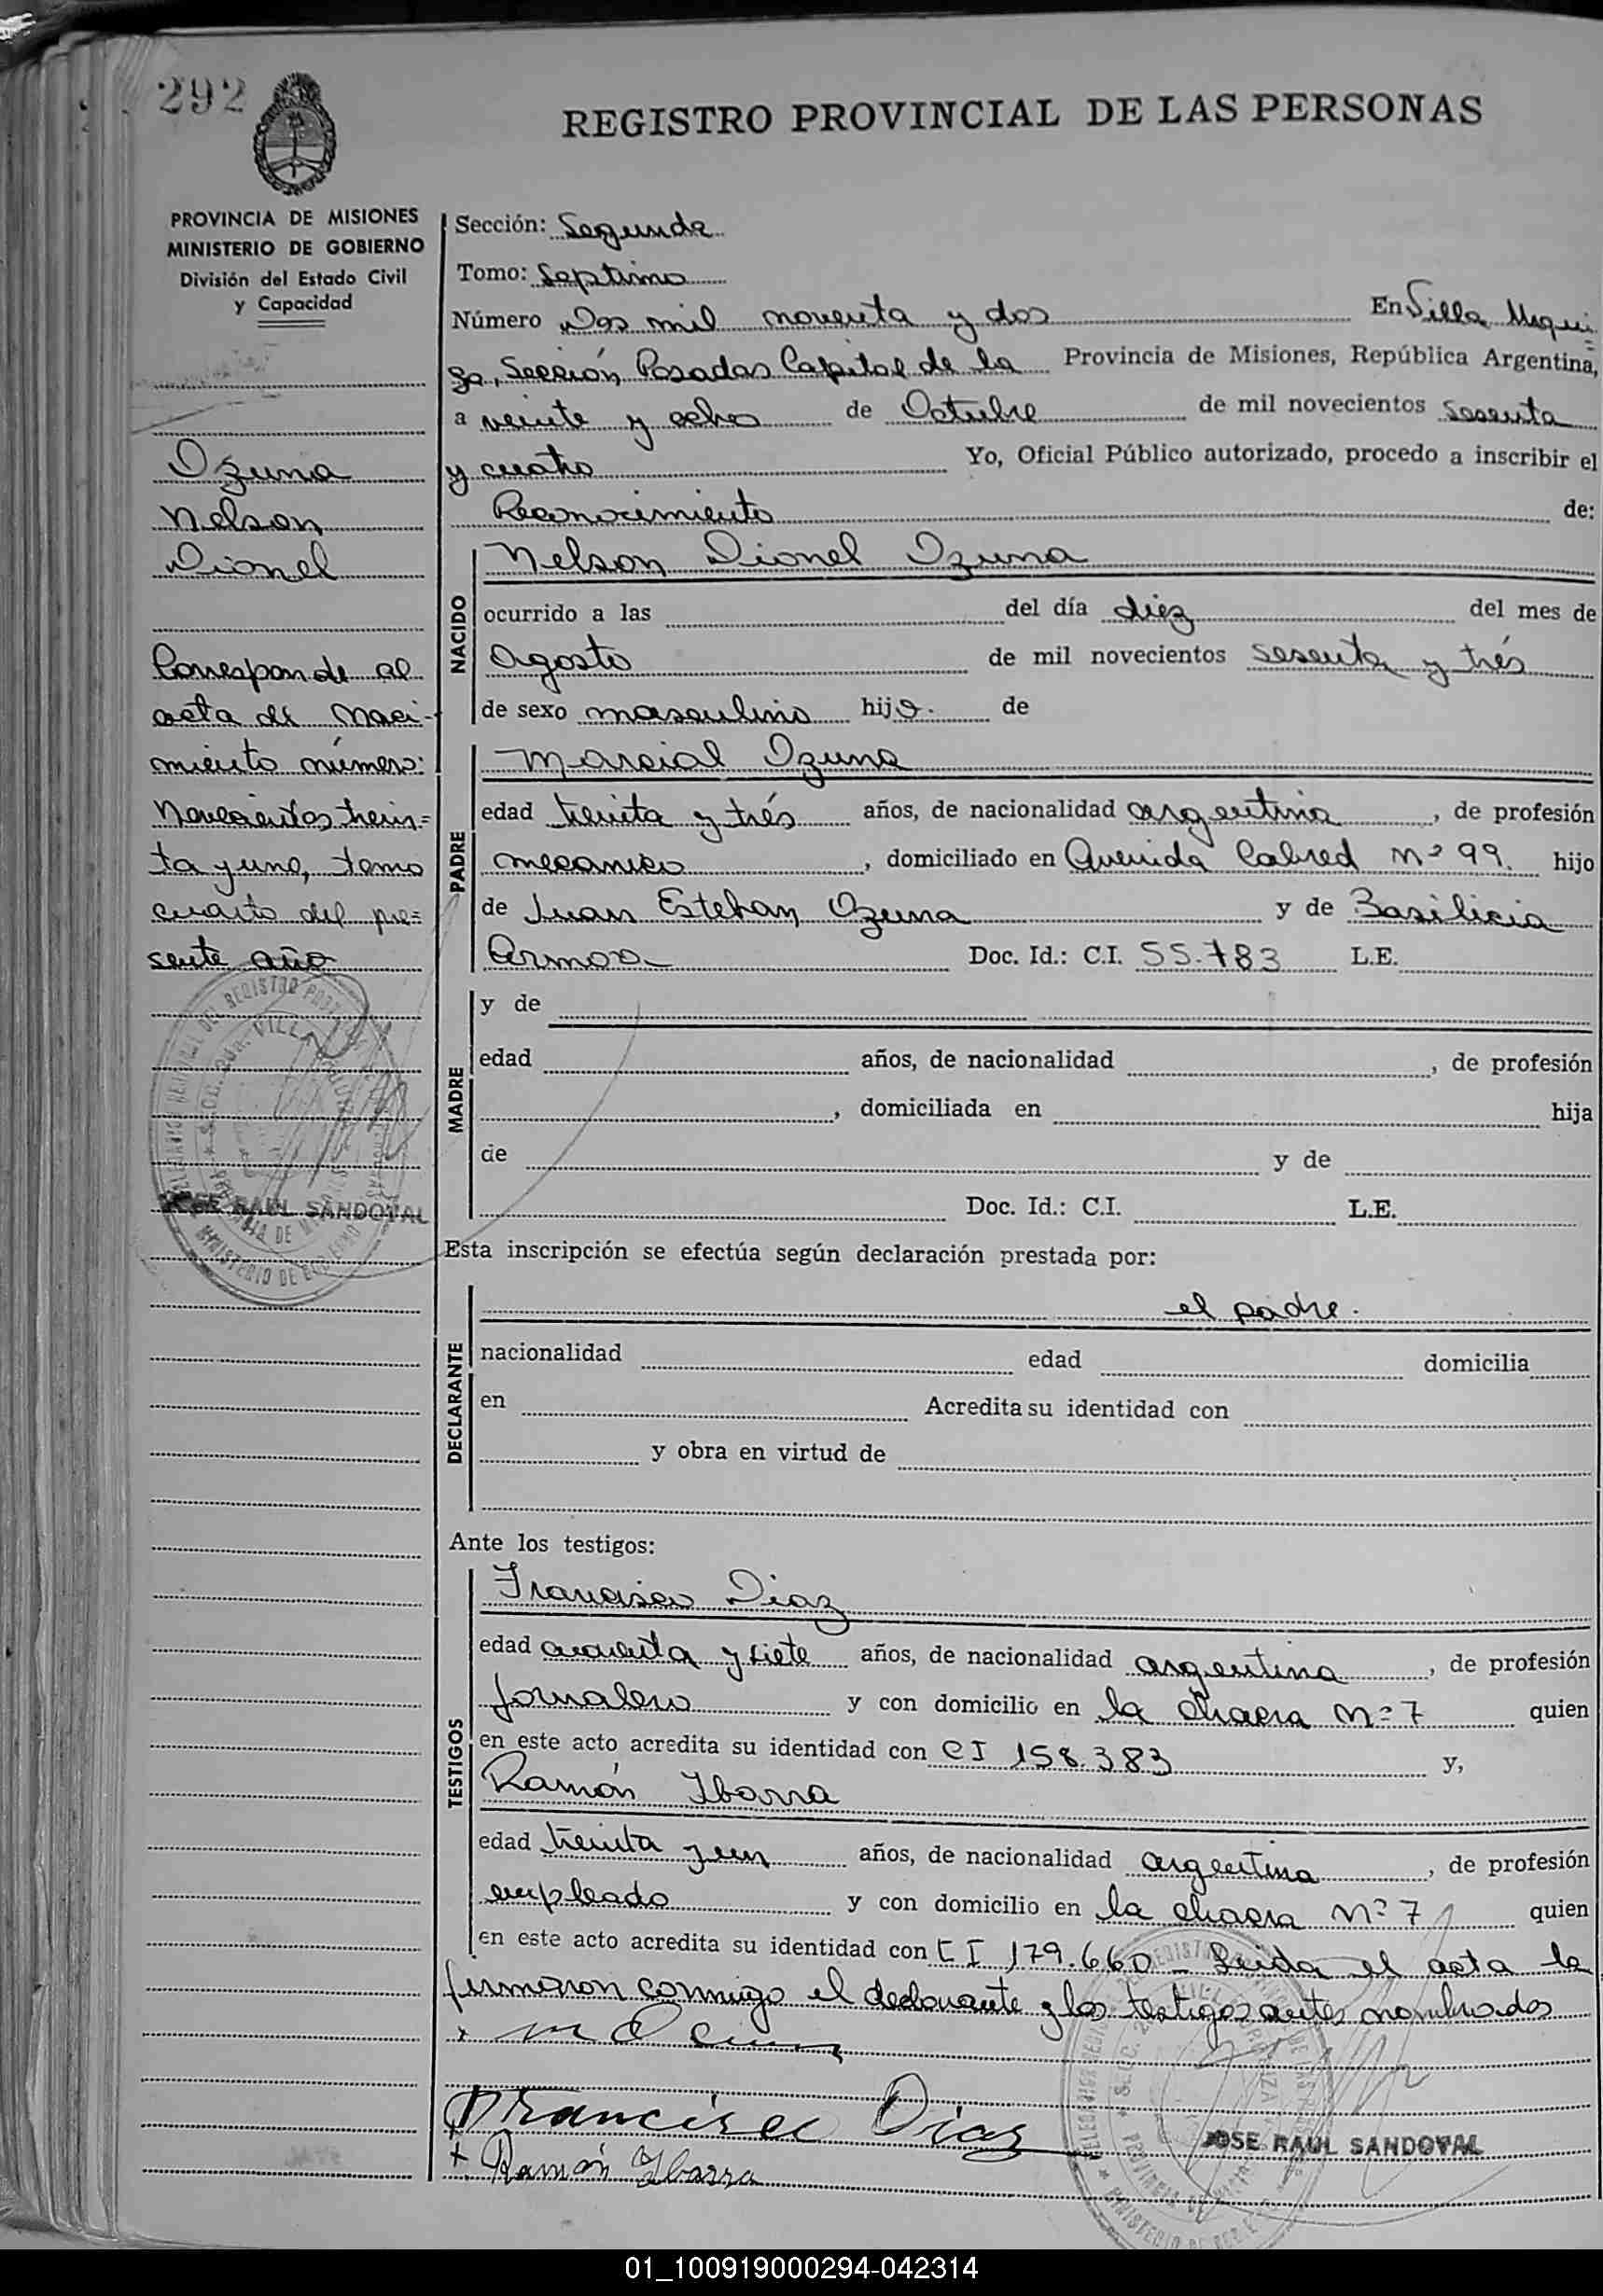 292
REGISTRO PROVINCIAL DE LAS PERSONAS
PROVINCIA DE MISIONES
MINISTERIO DE GOBIERNO
División del Estado Civil
y Capacidad
Ozuna
Nelson
Dionel
Corresponde al
acta de naci-
miento número:
Novecientos trein=
ta y uno, tomo
cuarto del pre=
sente año
JOSE RAUL SANDOVAL
Sección: Segunda
Tomo: Septimo
Número Dos mil noventa y dos En Villa Urqui=
za, Sección Posadas Capital de la Provincia de Misiones, República Argentina,
a veinte y ocho de Octubre de mil novecientos sesenta
y cuatro Yo, Oficial Público autorizado, procedo a inscribir el
Reconocimiento de:
NACIDO
Nelson Dionel Ozuna
ocurrido a las del día diez del mes de
Agosto de mil novecientos sesenta y trés
de sexo masculino hijo. de
PADRE
Marcial Ozuna
edad treinta y trés años, de nacionalidad argentina, de profesión
mecanico, domiciliado en Avenida Cabred Nº 99. hijo
de Juan Esteban Ozuna y de Basilicia
Armoa Doc. Id.: C.I. 55.783 L.E.
MADRE
y de
edad años, de nacionalidad , de profesión
, domiciliada en hija
de y de
Doc. Id.: C.I. L.E.
Esta inscripción se efectúa según declaración prestada por:
DECLARANTE
el padre.
nacionalidad edad domicilia
en Acredita su identidad con
y obra en virtud de
Ante los testigos:
TESTIGOS
Francisco Diaz
edad cuarenta y siete años, de nacionalidad argentina, de profesión
jornalero y con domicilio en la chacra Nº 7 quien
en este acto acredita su identidad con CI 158.383 y,
Ramón Ibarra
edad treinta y un años, de nacionalidad argentina, de profesión
empleado y con domicilio en la chacra Nº 7 quien
en este acto acredita su identidad con CI 179.660 - Leida el acta la
firmaron conmigo el declarante y los testigos antes nombrados
Francisco Diaz
+ Ramón Ibarra
JOSE RAUL SANDOVAL
01_100919000294-042314